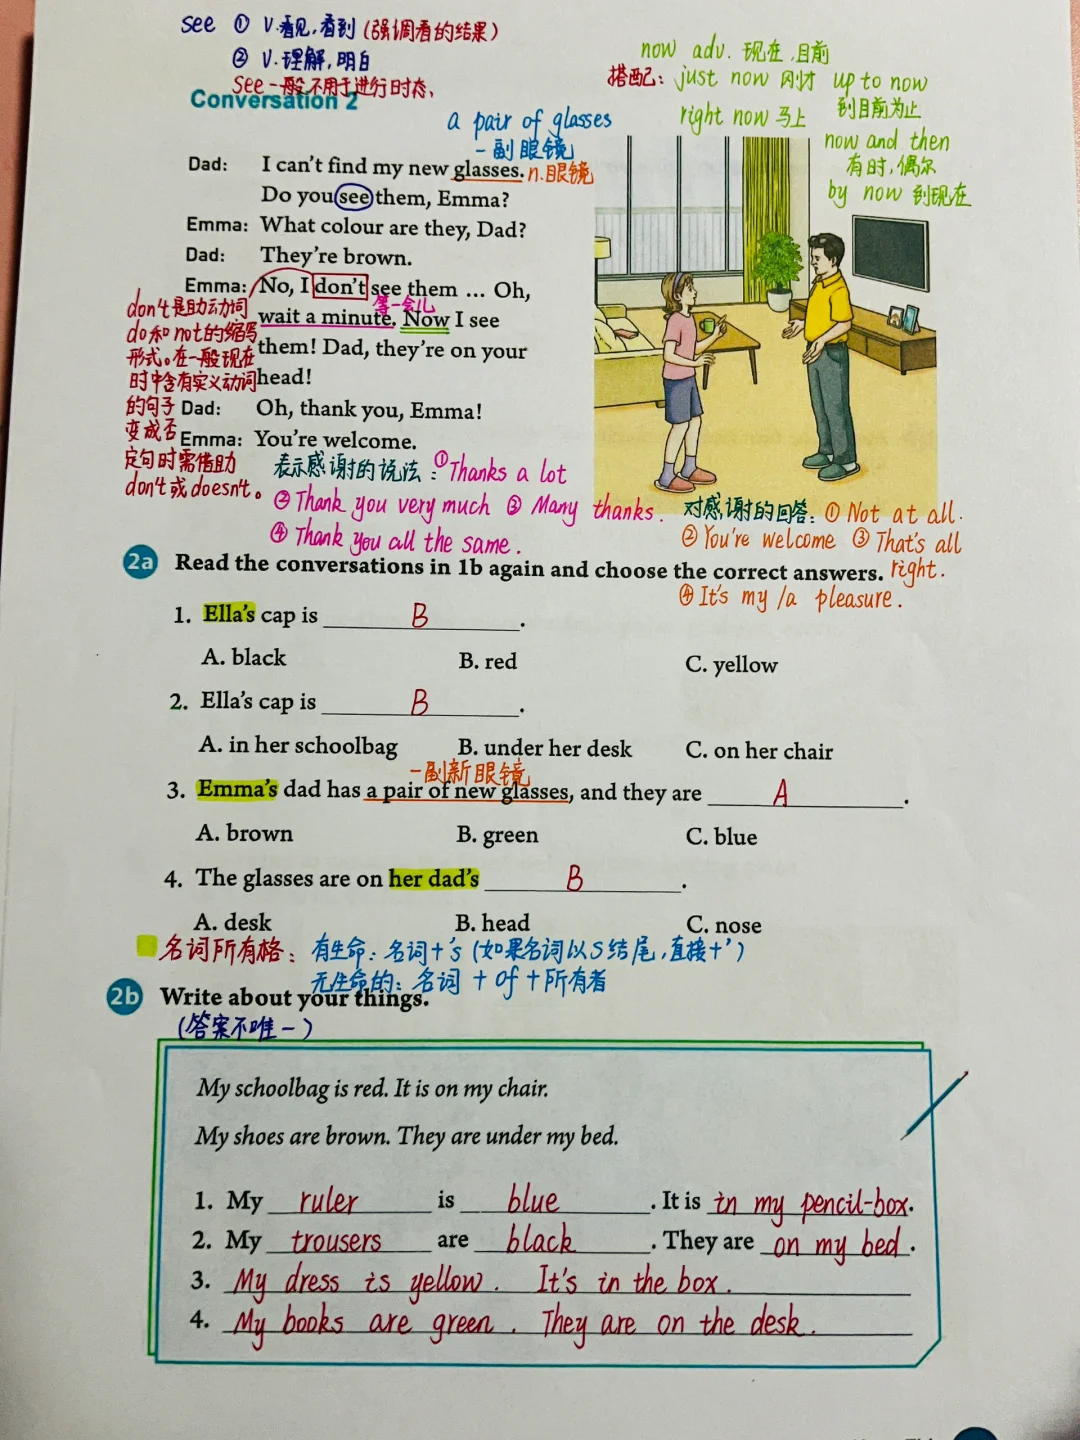 see ① v.看见,看到(强调看的结果)
② v.理解,明白
see一般不用于进行时态、
now adv. 现在,目前
搭配: just now 刚才 up to now
到目前为止
right now 马上
now and then
有时,偶尔
by now 到现在
Conversation 2
a pair of glasses
一副眼镜
Dad: I can't find my new glasses. n.眼镜
Do you see them, Emma?
Emma: What colour are they, Dad?
Dad: They're brown.
Emma: No, I don't see them ... Oh,
等一会儿
wait a minute. Now I see
them! Dad, they're on your
head!
Dad: Oh, thank you, Emma!
Emma: You're welcome.
don't是助动词
do和not的缩写
形式。在一般现在
时中含有实义动词
的句子
变成否
定句时需借助
don't或doesn't。
表示感谢的说法: ①Thanks a lot
②Thank you very much ③ Many thanks.
④ Thank you all the same.
对感谢的回答: ① Not at all.
② You're welcome ③ That's all
right.
④ It's my /a pleasure.
2a Read the conversations in 1b again and choose the correct answers.
1. Ella's cap is B.
A. black B. red C. yellow
2. Ella's cap is B.
A. in her schoolbag B. under her desk C. on her chair
一副新眼镜
3. Emma's dad has a pair of new glasses, and they are A.
A. brown B. green C. blue
4. The glasses are on her dad's B.
A. desk B. head C. nose
名词所有格: 有生命: 名词+'s (如果名词以S结尾,直接+')
无生命的: 名词 + of + 所有者
2b Write about your things.
(答案不唯一)
My schoolbag is red. It is on my chair.
My shoes are brown. They are under my bed.
1. My ruler is blue. It is in my pencil-box.
2. My trousers are black. They are on my bed.
3. My dress is yellow. It's in the box.
4. My books are green. They are on the desk.